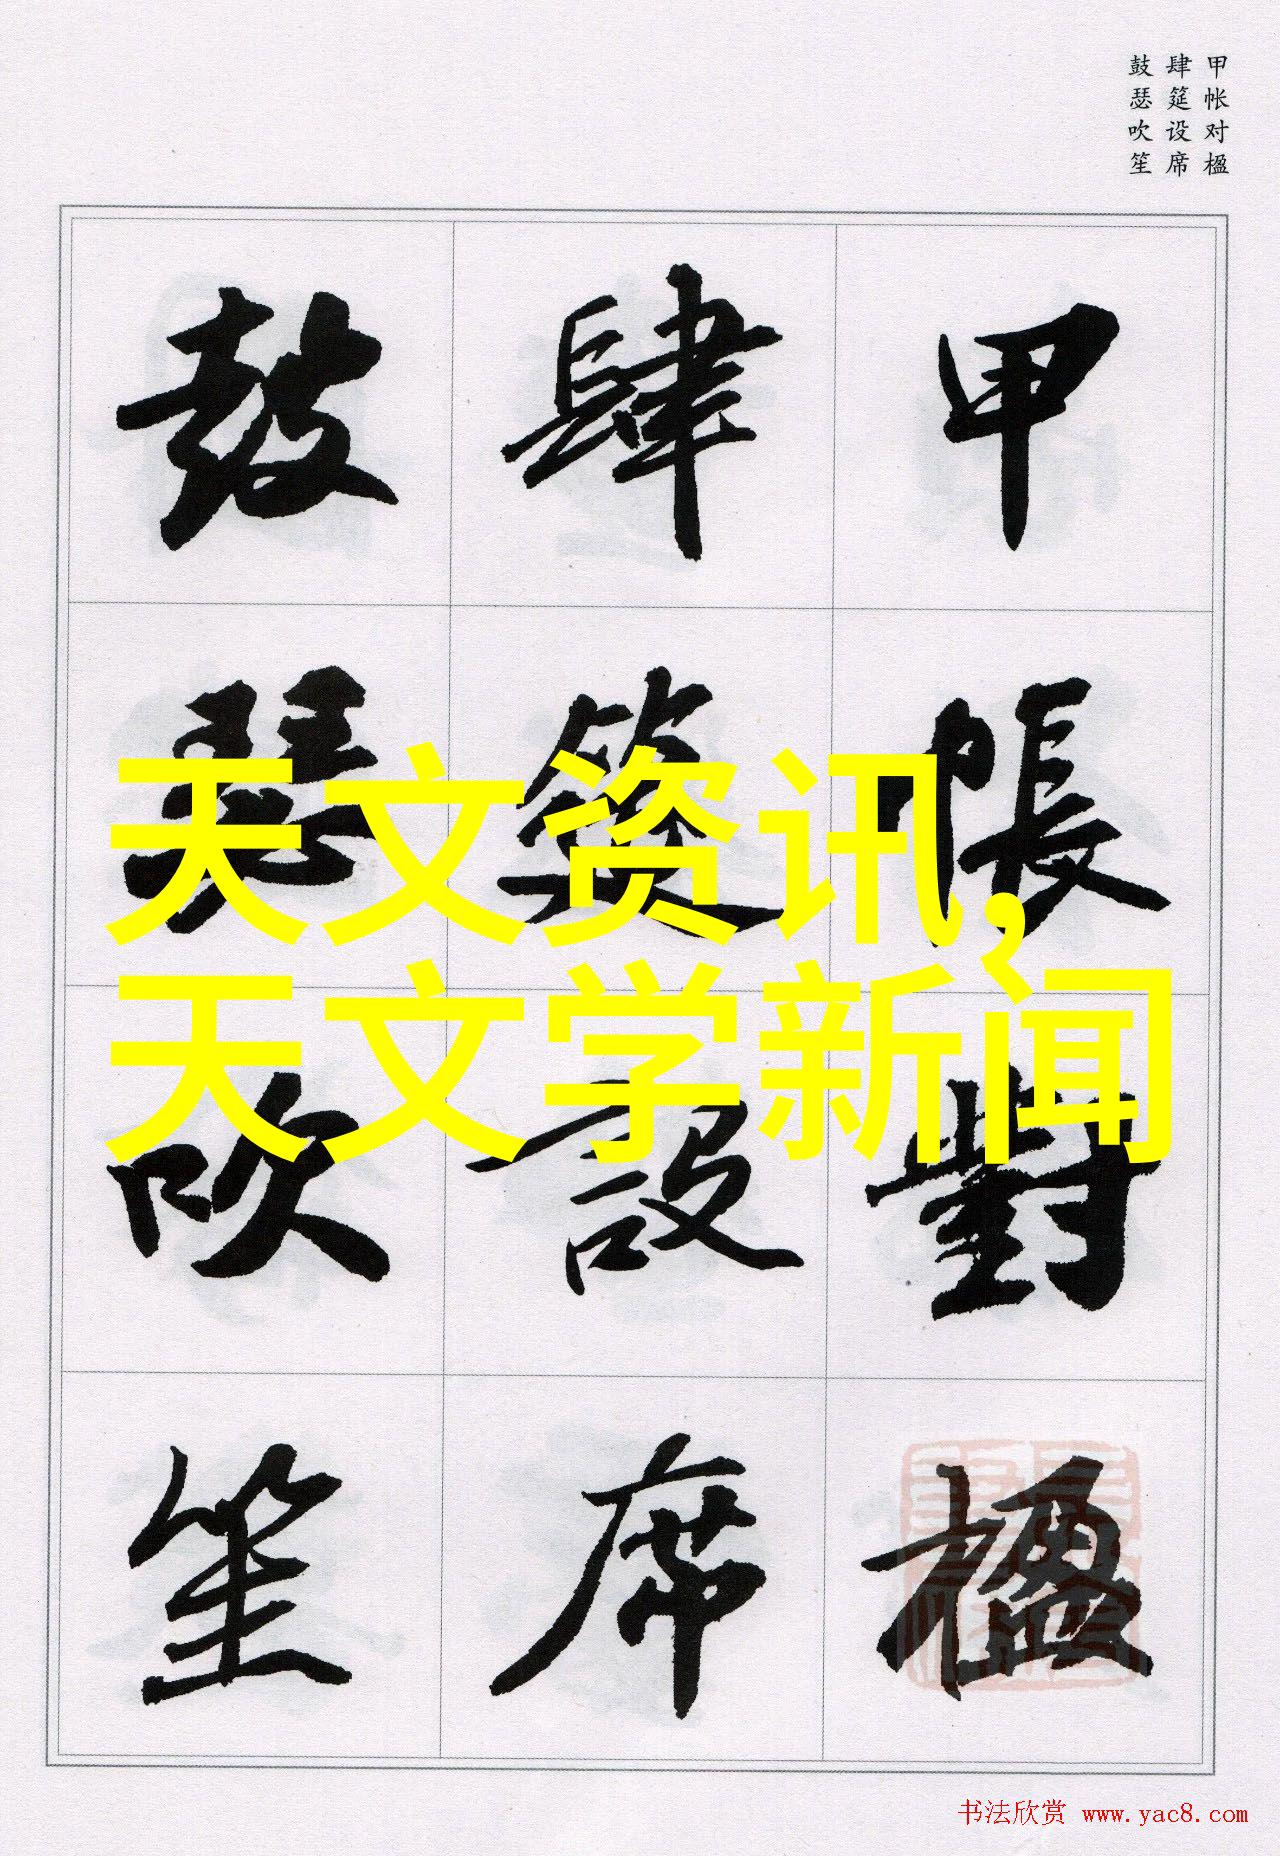 甲帐对楹
肆筵设席
鼓瑟吹笙
甲帳對楹
肆筵設席
鼓瑟吹笙
天文资讯,
天文学新闻
书法欣赏 www.yac8.com